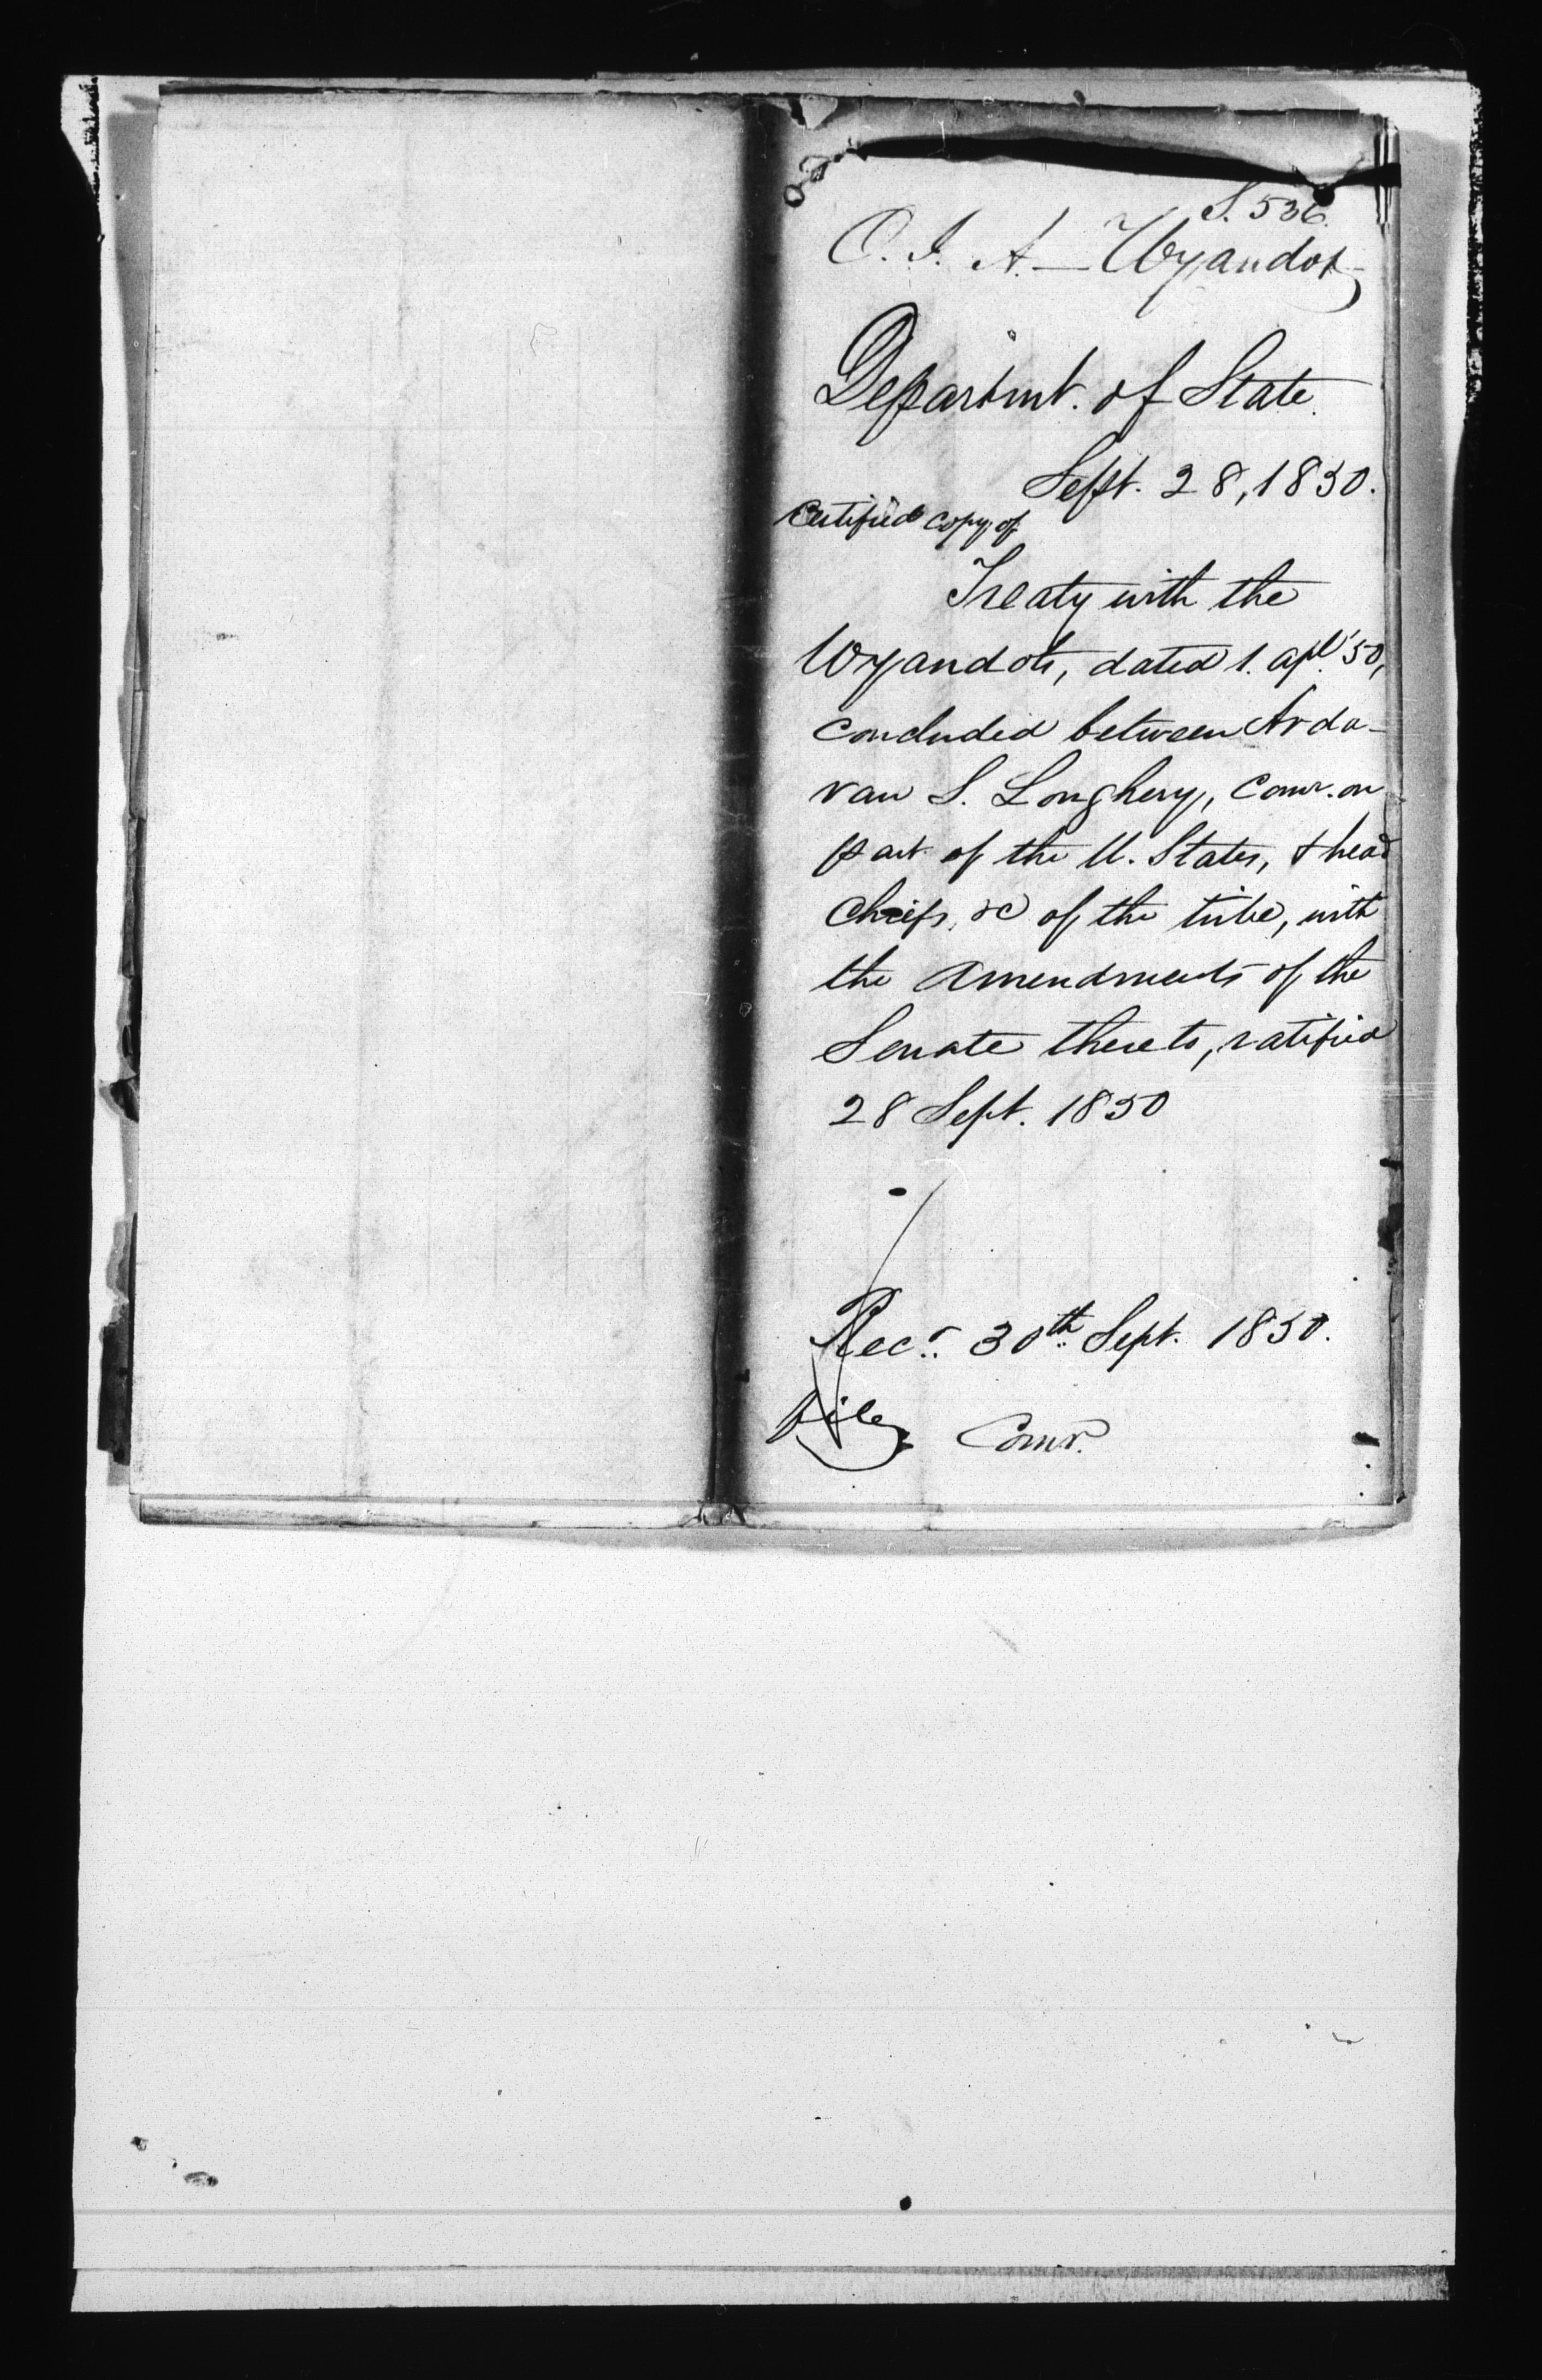 S. 536.
O. I. A. — Wyandot
Departmt. of State.
Sept. 28, 1850.
Certified copy of
Treaty with the
Wyandots, dated 1. apl. '50,
concluded between Arda-
van S. Loughery, Comr. on
part of the U. States, & head
Chiefs, &c of the tribe, with
the amendments of the
Senate thereto, ratified
28 Sept. 1850
Recd. 30th Sept. 1850.
File
Comr.